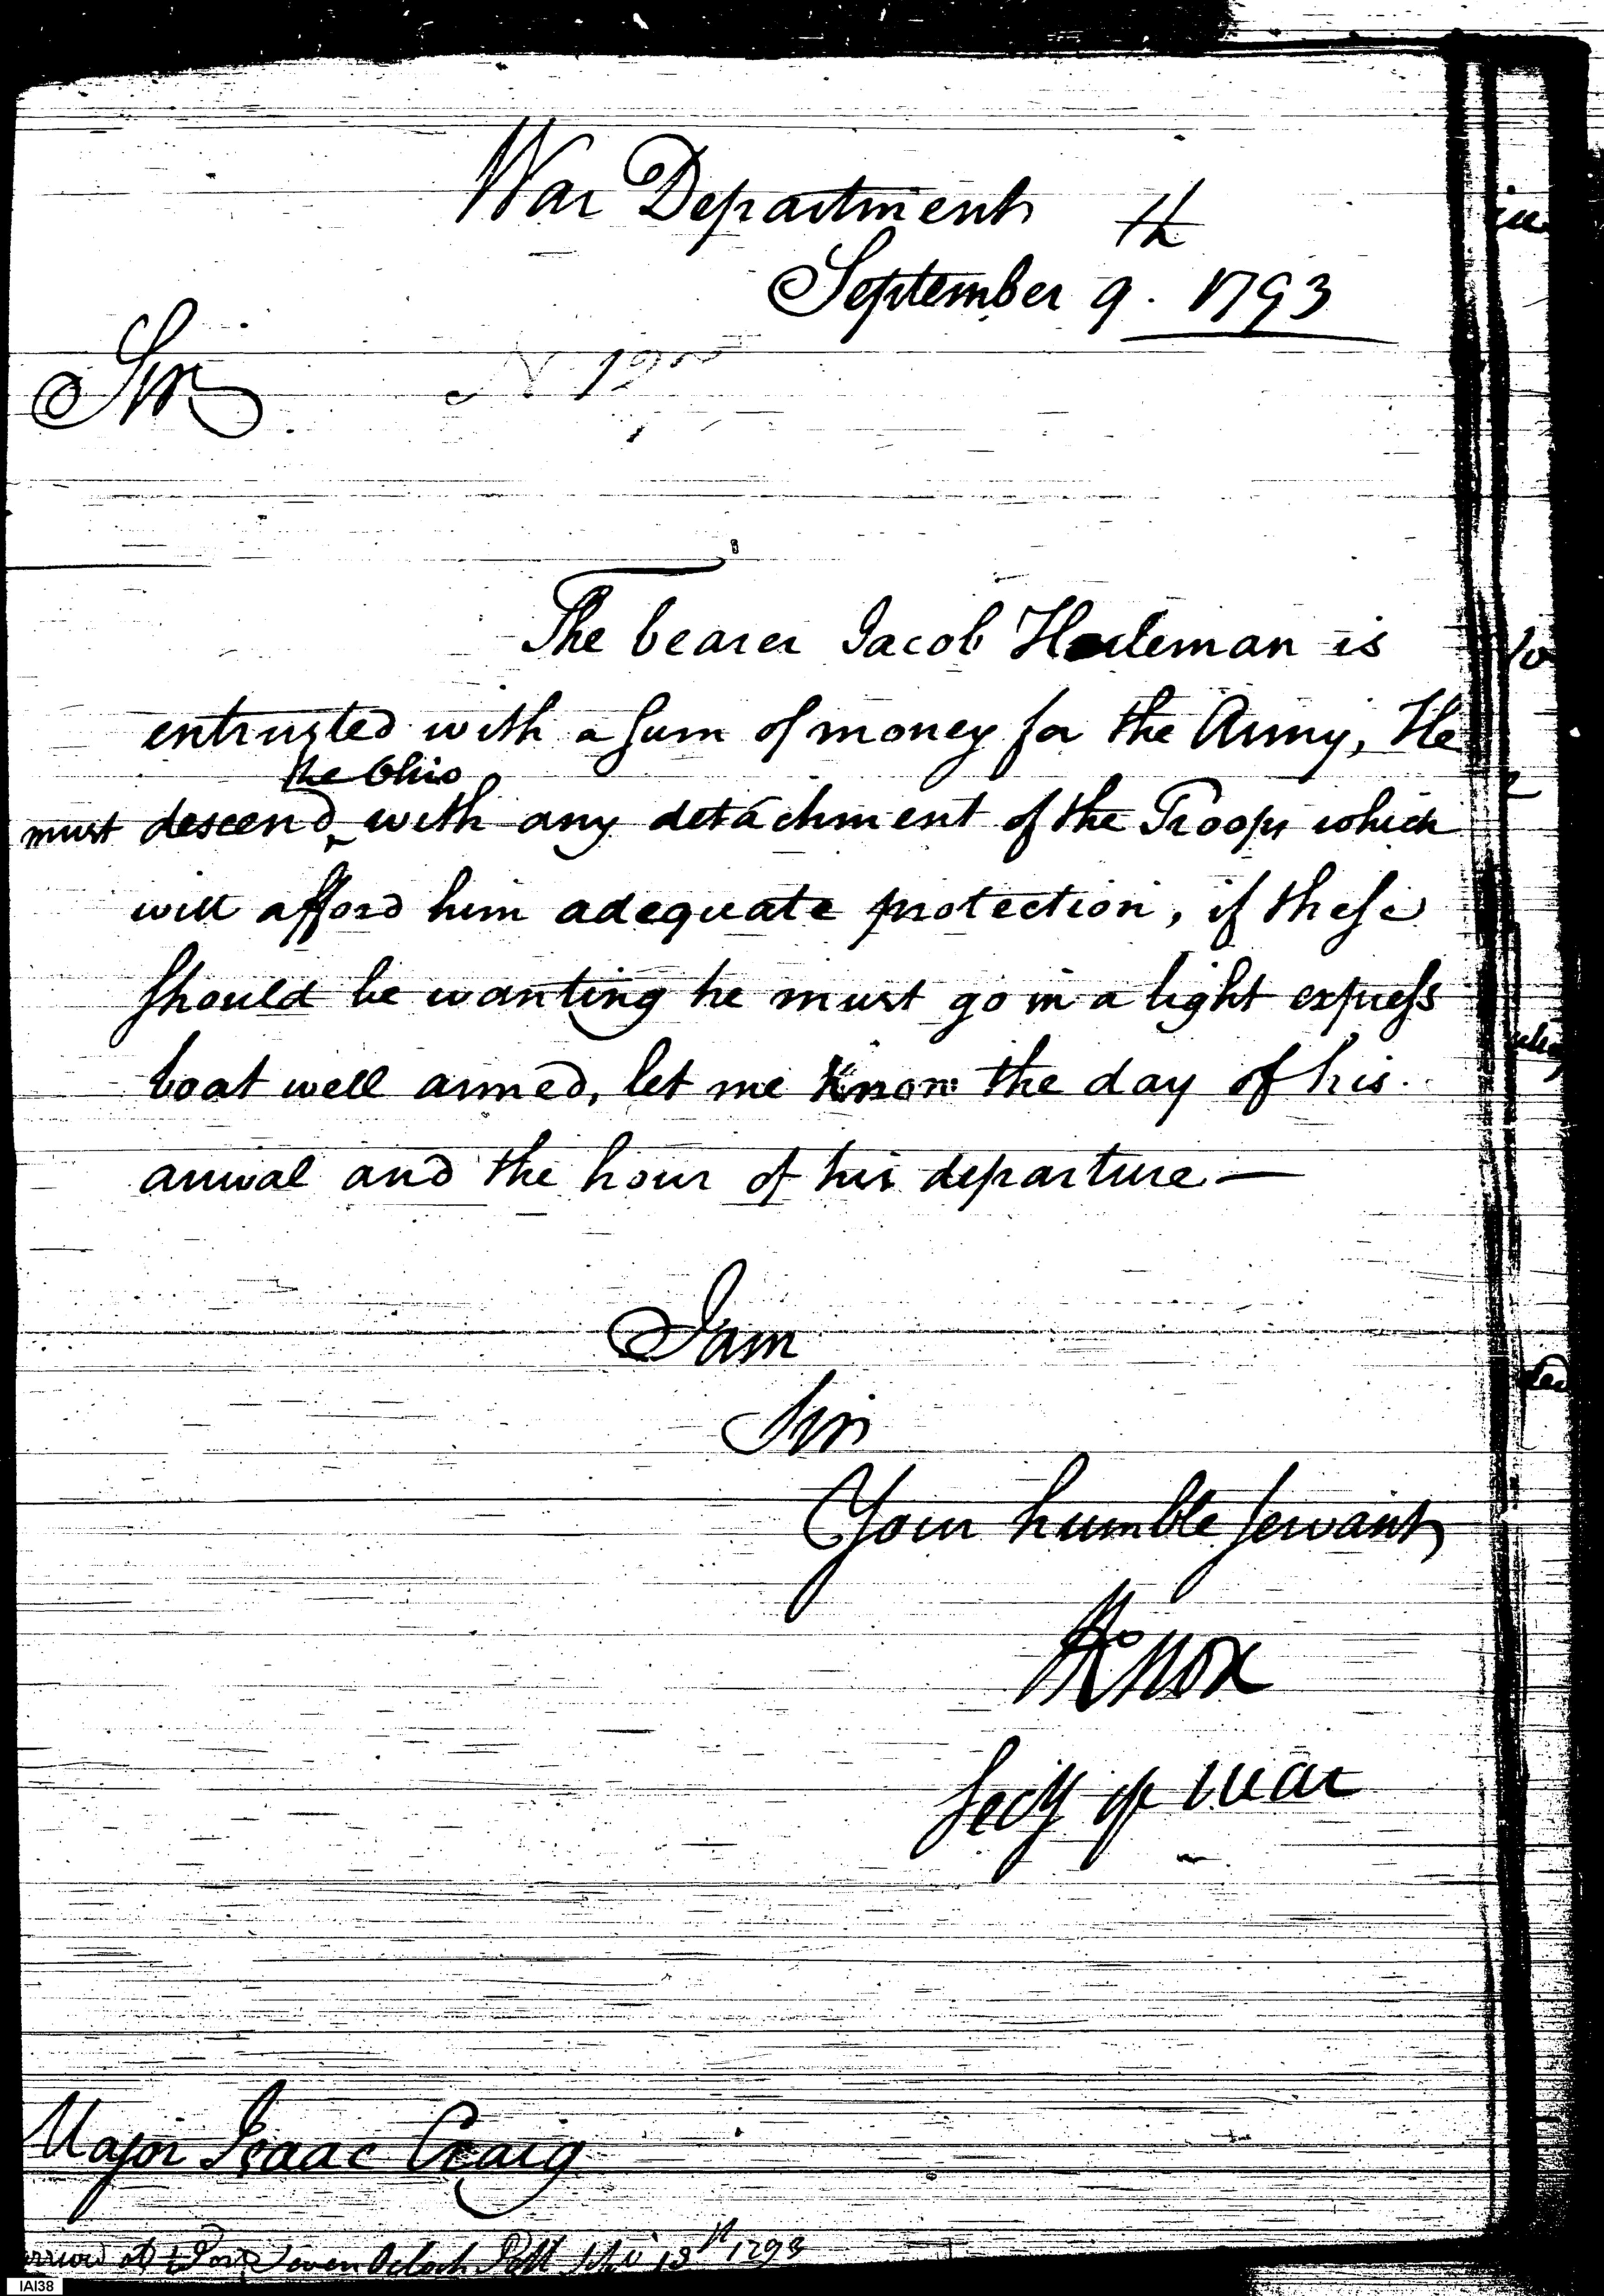 War Department
September 9th. 1793
Sir
The bearer Jacob is
entrusted with a sum of money for the Army, He
the Ohio
must descend with any detachment of the Troops which
will afford him adequate protection, if these
should be wanting he must go in a light express
boat well armed, let me know the day of his
arrival and the hour of his departure—
I am
Sir
Your humble servant
HKnox
Secy of war
Major Isaac Craig
1793
IAI38